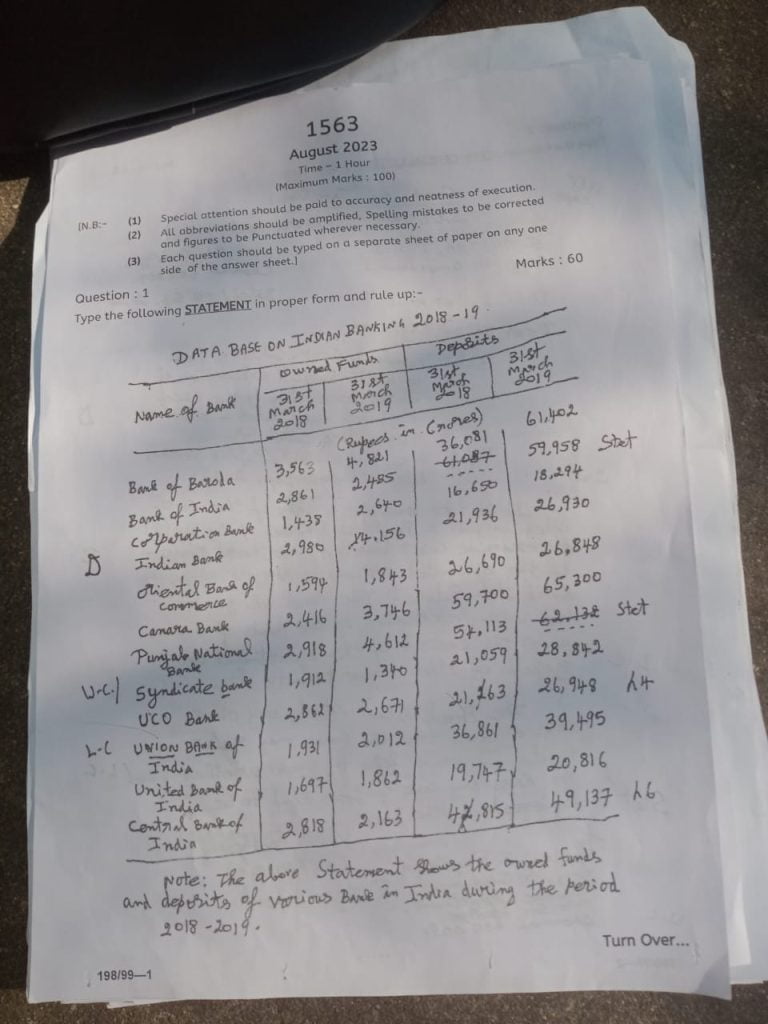 1563
August 2023
Time – 1 Hour
(Maximum Marks : 100)
[N.B:– (1) Special attention should be paid to accuracy and neatness of execution.
(2) All abbreviations should be amplified, Spelling mistakes to be corrected
and figures to be Punctuated wherever necessary.
(3) Each question should be typed on a separate sheet of paper on any one
side of the answer sheet.]
Marks : 60
Question : 1
Type the following STATEMENT in proper form and rule up:–
DATA BASE ON INDIAN BANKING 2018-19.
Name of Bank Owned Funds Deposits
31st March 2018 31st March 2019 31st March 2018 31st March 2019
(Rupees in Crores)
Bank of Baroda 3,563 4,821 36,081 61,402
Bank of India 2,861 2,485 61,087 59,958 Stet
Corporation Bank 1,438 2,640 16,650 18,294
D Indian Bank 2,980 4.156 21,936 26,930
Oriental Bank of
Commerce 1,594 1,843 26,690 26,848
Canara Bank 2,416 3,746 59,700 65,300
Punjab National
Bank 2,918 4,612 54,113 62,138 Stet
U-C/ Syndicate bank 1,912 1,340 21,059 28,842
UCO Bank 2,862 2,671 21,263 26,948 4
L-C UNION BANK of
India 1,931 2,012 36,861 39,495
United Bank of
India 1,697 1,862 19,747 20,816
Central Bank of
India 2,818 2,163 42,815 49,137 6
Note: The above Statement shows the owned funds
and deposits of various Bank in India during the period
2018-2019.
Turn Over...
198/99—1